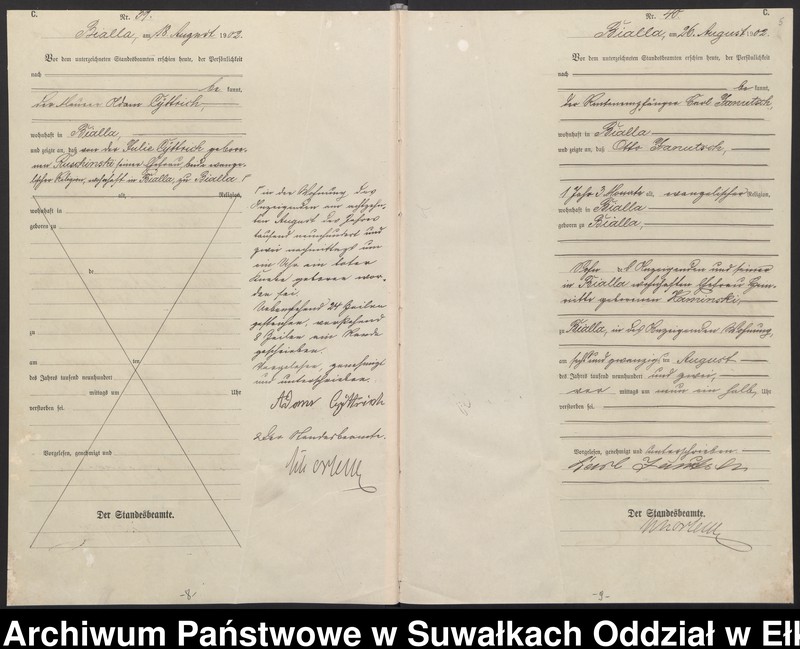 C.
Nr. 39.
Bialla, am 18. August 1902.
Vor dem unterzeichneten Standesbeamten erschien heute, der Persönlichkeit
nach
be kannt,
der Adam Cyttrich,
wohnhaft in Bialla,
und zeigte an, daß von der Julie Cyttrich gebore-
nen Ruschinski seiner Ehefrau, beide evange-
lischer Religion, wohnhaft in Bialla, zu Bialla
alt, Religion,
wohnhaft in
geboren zu
de
zu
am ten
des Jahres tausend neunhundert
mittags um Uhr
verstorben sei.
Vorgelesen, genehmigt und
Der Standesbeamte.
-8-
in der Wohnung des
Anzeigenden am achtzehn-
ten August des Jahres
tausend neunhundert und
zwei nachmittags um
ein Uhr ein toter
Knabe geboren wor-
den sei.
Nebenstehend 24 Zeilen
gestrichen, vorstehend
8 Zeilen am Rande
geschrieben.
Vorgelesen, genehmigt
und unterschrieben.
Adam Cyttrich
Der Standesbeamte.
C.
Nr. 40.
Bialla, am 26. August 1902.
Vor dem unterzeichneten Standesbeamten erschien heute, der Persönlichkeit
nach
be kannt,
der Rentenempfänger Carl Janutsch,
wohnhaft in Bialla
und zeigte an, daß Otto Janutsch,
1 Jahr 3 Monate alt, evangelischer Religion,
wohnhaft in Bialla
geboren zu Bialla,
Sohn des Anzeigenden und seiner
in Bialla wohnhaften Ehefrau Hen-
riette geborenen Kaminski,
zu Bialla, in des Anzeigenden Wohnung,
am sechsundzwanzigsten August
des Jahres tausend neunhundert und zwei,
vor mittags um neun ein halb Uhr
verstorben sei.
Vorgelesen, genehmigt und unterschrieben.
Der Standesbeamte.
-9-
Archiwum Państwowe w Suwałkach Oddział w Ełk